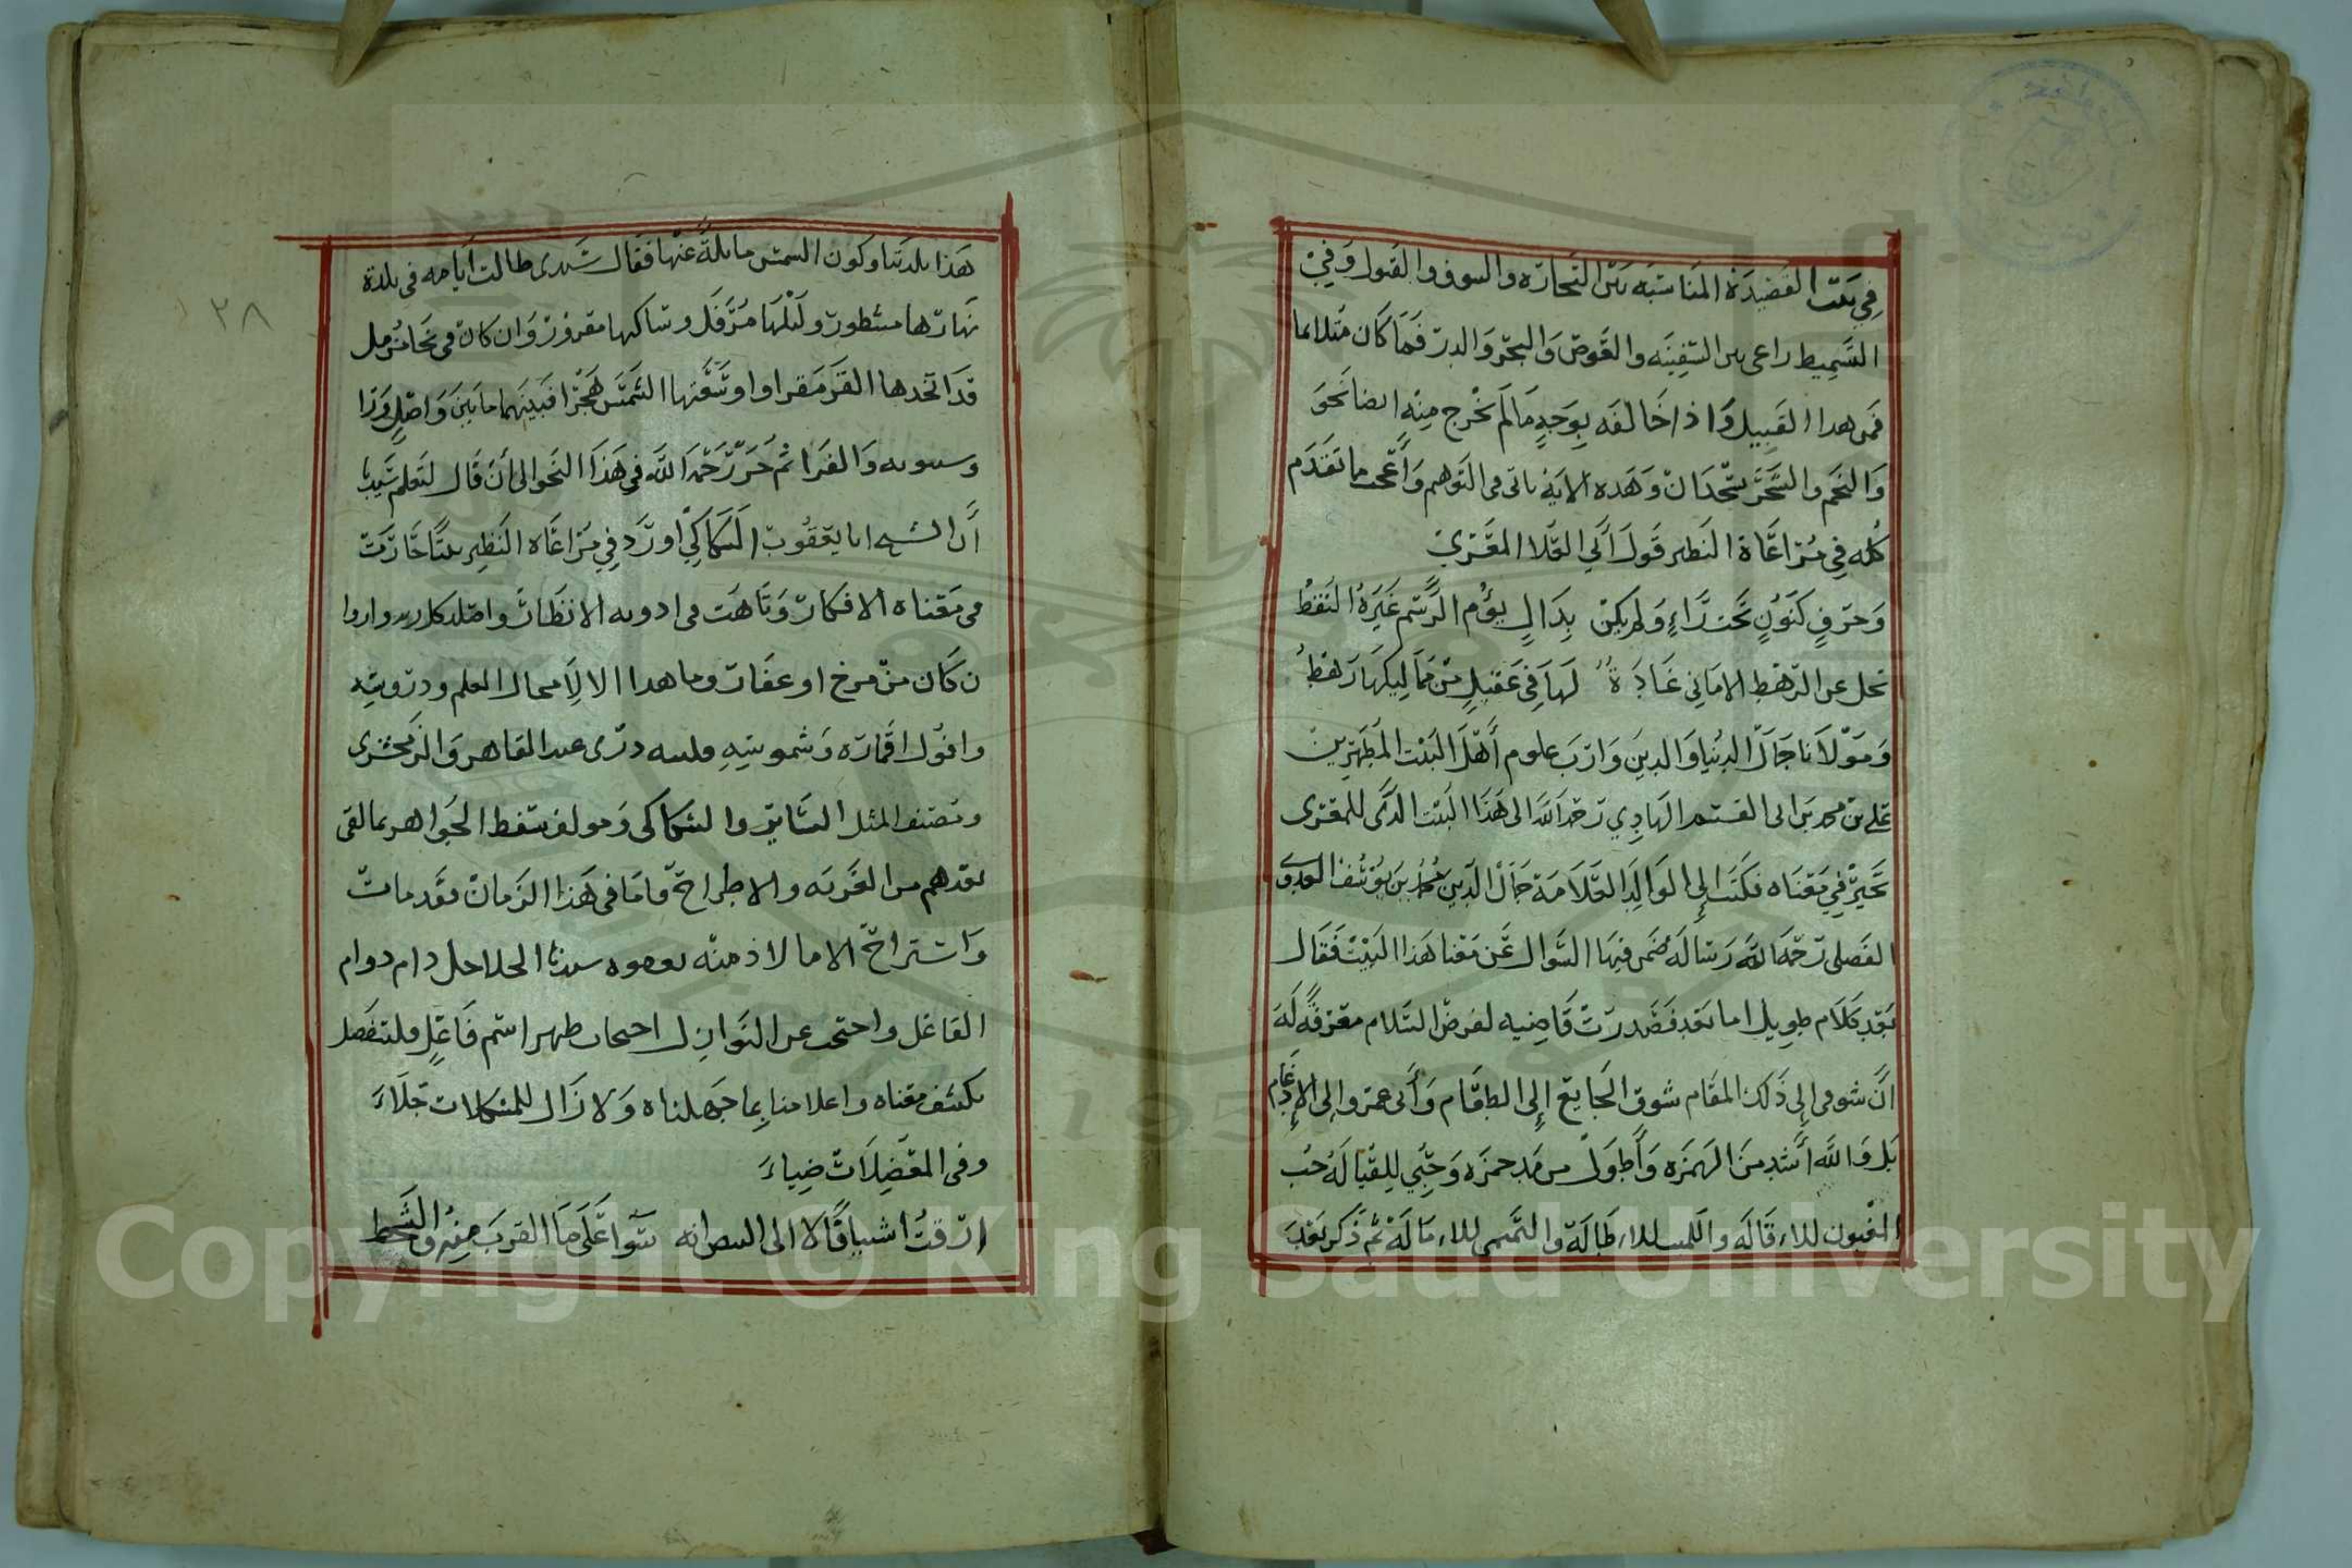 في بيت القصيدة المناسبه بين التجاره والسوق والقبول وفي
السميط راعى بين السفينه والغوص والبحر والدر فما كان مثلا بما
فمن هذا القبيل واذا خالفه بوجه ما لم يخرج منه ايضا نحو
والنجم والشجر يسجدان وهذه الاية تاتي في التوهم وأعجب ما تقدم
كله في مراعاة النظير قول أبي العلا المعري
وحرف كنون تحت راء ولم يكن بدال يؤم الرسم غيره النقط
تحل عن الرهط الاماني غادة لها في عقيل من مماليكها رهط
ومولانا جمال الدنيا والدين وارث علوم أهل البيت المطهرين
علي بن محمد بن ابى القسم الهادي رحمه الله الى هذا البيت الذى للمعرى
تحير في معناه فكتب إلى الوالد العلامة جمال الدين محمد بن يوسف
الفضلى رحمه الله رسالة ضمن فيها السؤال عن معنا هذا البيت فقال
بعد كلام طويل اما بعد فصدرت قاضيه لفرض السلام معرفة له
أن شوقى إلى ذلك المقام شوق الجايع إلى الطعام وأبى عمرو إلى الإدغام
بل والله أشد من الهمزه وأطول من مد حمزه وحبي للقياه حب
المغبون للاقاله والمستطاله والتميمى للاماله ثم ذكر بعد
هذا بلدتنا وكون الشمس مائلة عنها فقال سيدى طالت أيامه في بلدة
نهارها مشطور وليلها مرفل وساكنها مقرور وان كان في نحا مزمل
قد اتخدها القر مقرا واوسعتها الشمس هجرا فبينهما ما بين واصل ورا
وسيبويه والفرا ثم حرر رحمه الله في هذا النحو الى أن قال لتعلم سيدنا
أن الشيخ ابا يعقوب السكاكي اورد في مراعاه النظير بيتا حارت
في معناه الافكار وتاهت في اوديه الانظار واصلد كل زند وارى
ن كان من مرخ او عفار وما هذا الا لإمحال العلم ودروسه
وافول اقماره وشموسه ملسه درى عبد القاهر والزمخشرى
ومصنف المثل السائر والسكاكى ومولف سقط الجواهر بما لقى
بعدهم من الغربه والاطراح فاما في هذا الزمان فقد مات
واستراح الا ما لاذ منه بوجوه سيدنا الحلاحل دام دوام
الفاعل واحتجب عن النوازل احتجاب ظهر اسم فاعل فليتفضل
بكشف معناه واعلامنا بما جهلناه ولا زال للمشكلات جلاء
وفى المعضلات ضياء
ارقت اشياقا لا الى البصرانه سوا على ما القرب منه والشحط
١٣٨
Copyright © King Saud University
1957